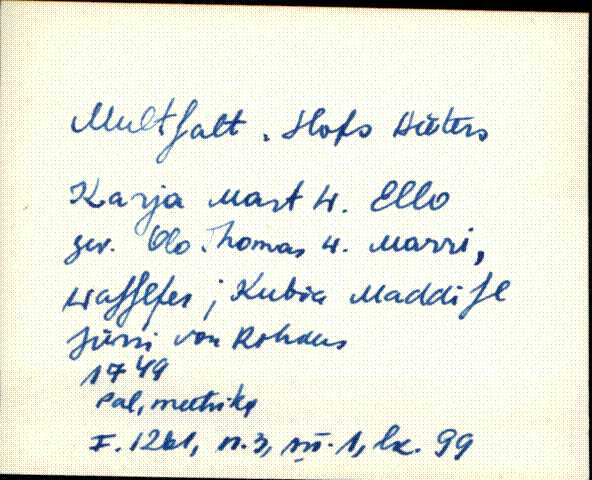 Multfalt. Hofs Hüters
Karja Mart W. Ello
gev. Olo Thomas W. Marri,
Wasslfer; Kubia Maddise
Jürri von Rohaus
1749
Pal, meetrika
I. 1261, n. 3, m. 1, lk. 99